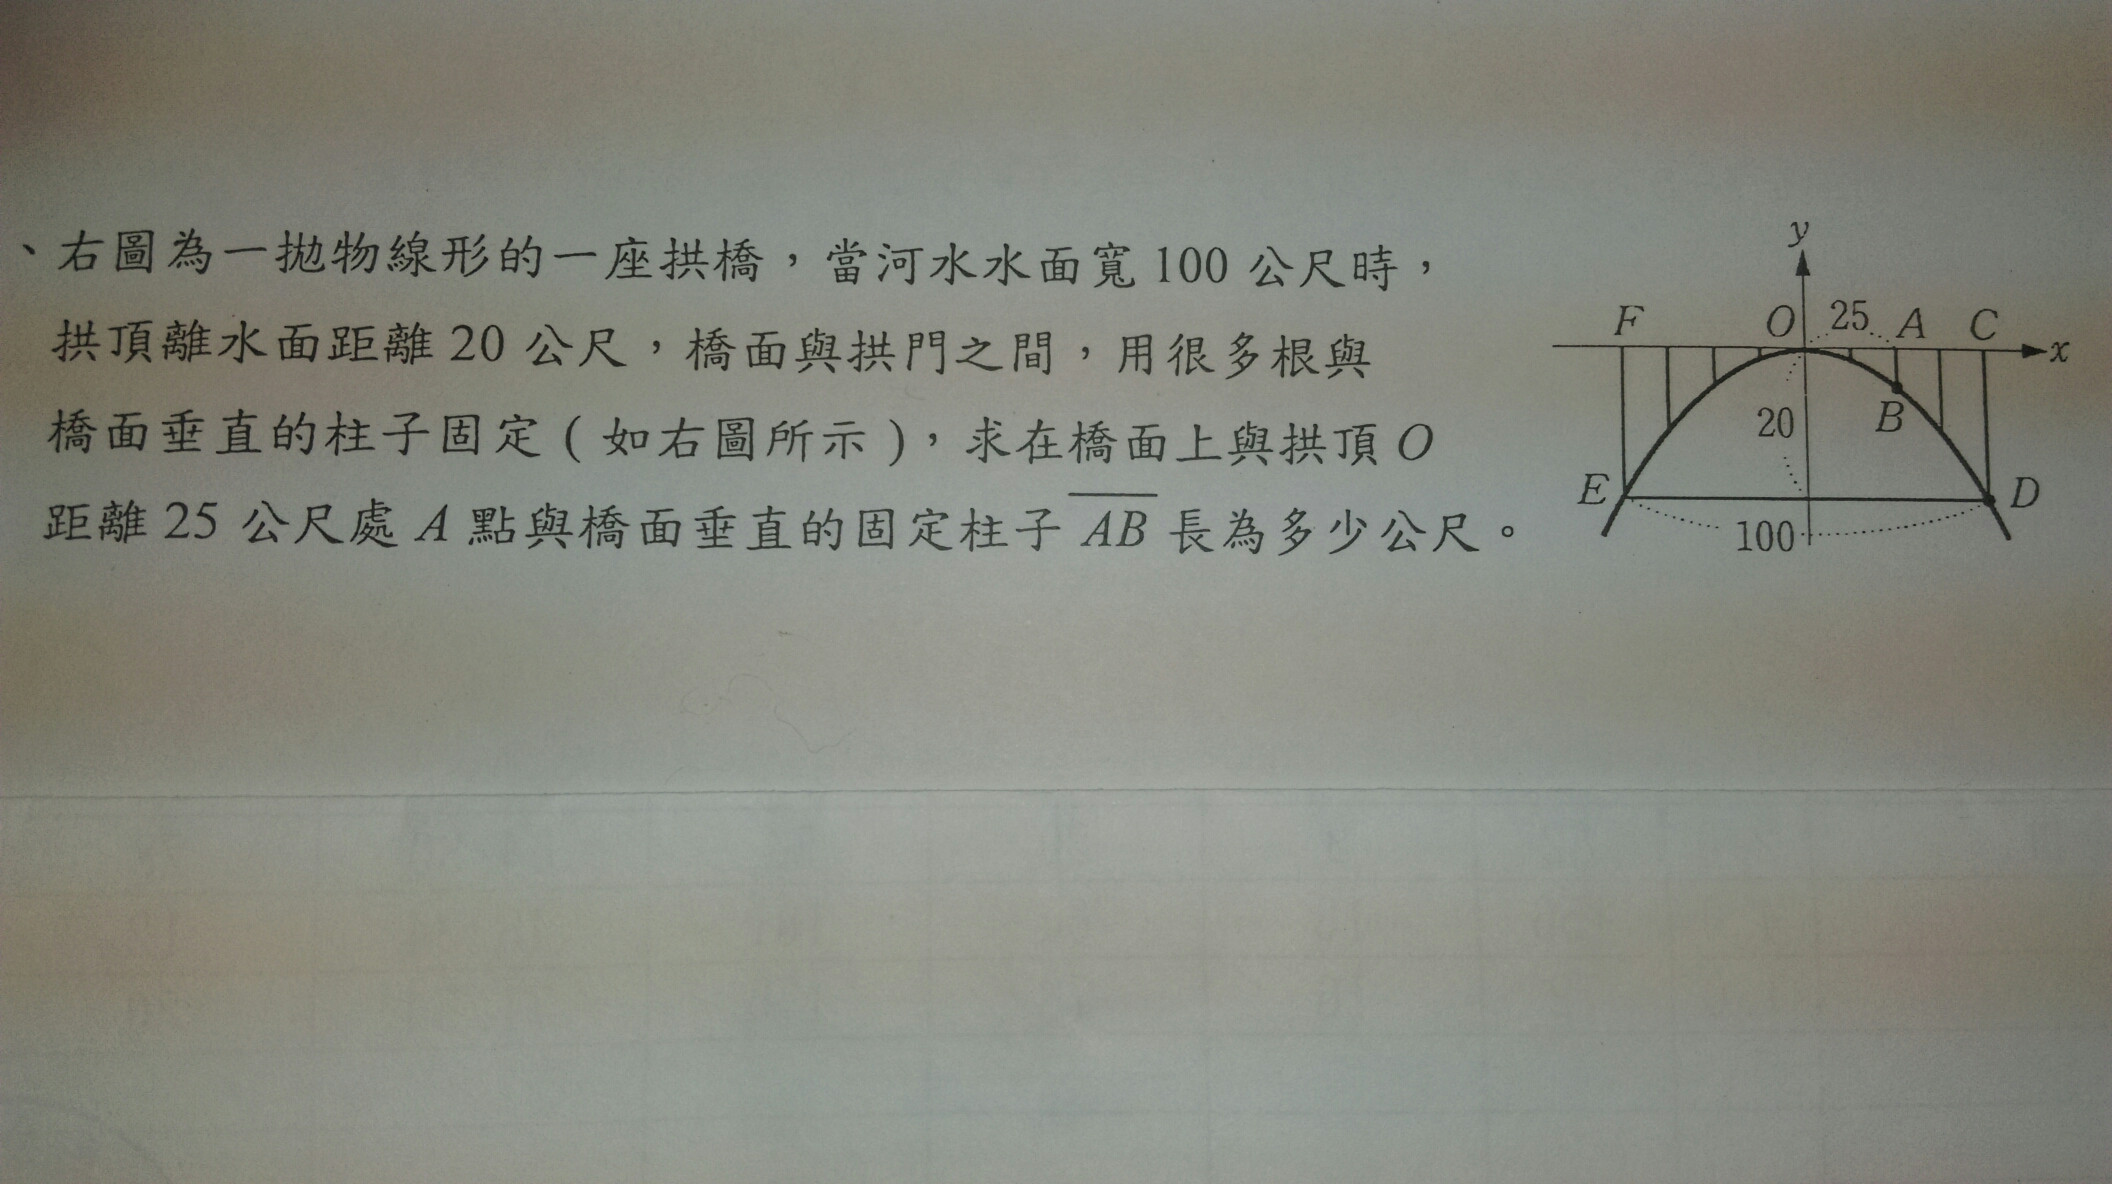 、右圖為一拋物線形的一座拱橋，當河水水面寬 100 公尺時，
拱頂離水面距離 20 公尺，橋面與拱門之間，用很多根與
橋面垂直的柱子固定 ( 如右圖所示 )，求在橋面上與拱頂 O
距離 25 公尺處 A 點與橋面垂直的固定柱子 AB 長為多少公尺。
y
F O 25 A C
x
20 B
E D
100